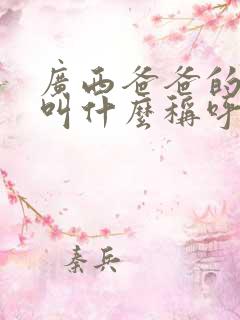 廣西爸爸的
叫什麼稱呼
秦兵